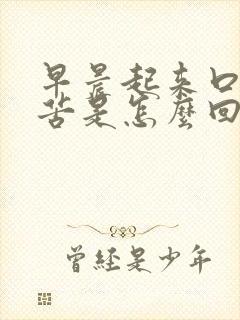 早晨起来口
苦是怎麼回
曾经是少年